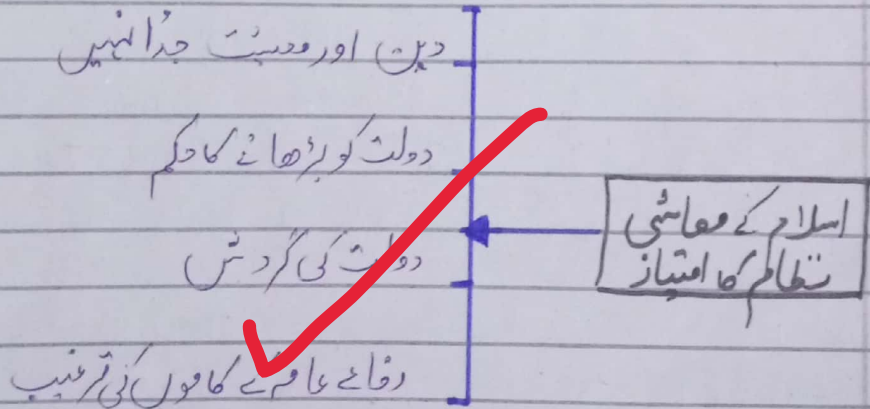 اسلام کے معاشی
نظام کا امتیاز
دین اور معیشت جدُا نہیں
دولت کو بڑھانے کا حکم
دولت کی گردش
رفاعے عامہ کے کاموں کی ترغیب